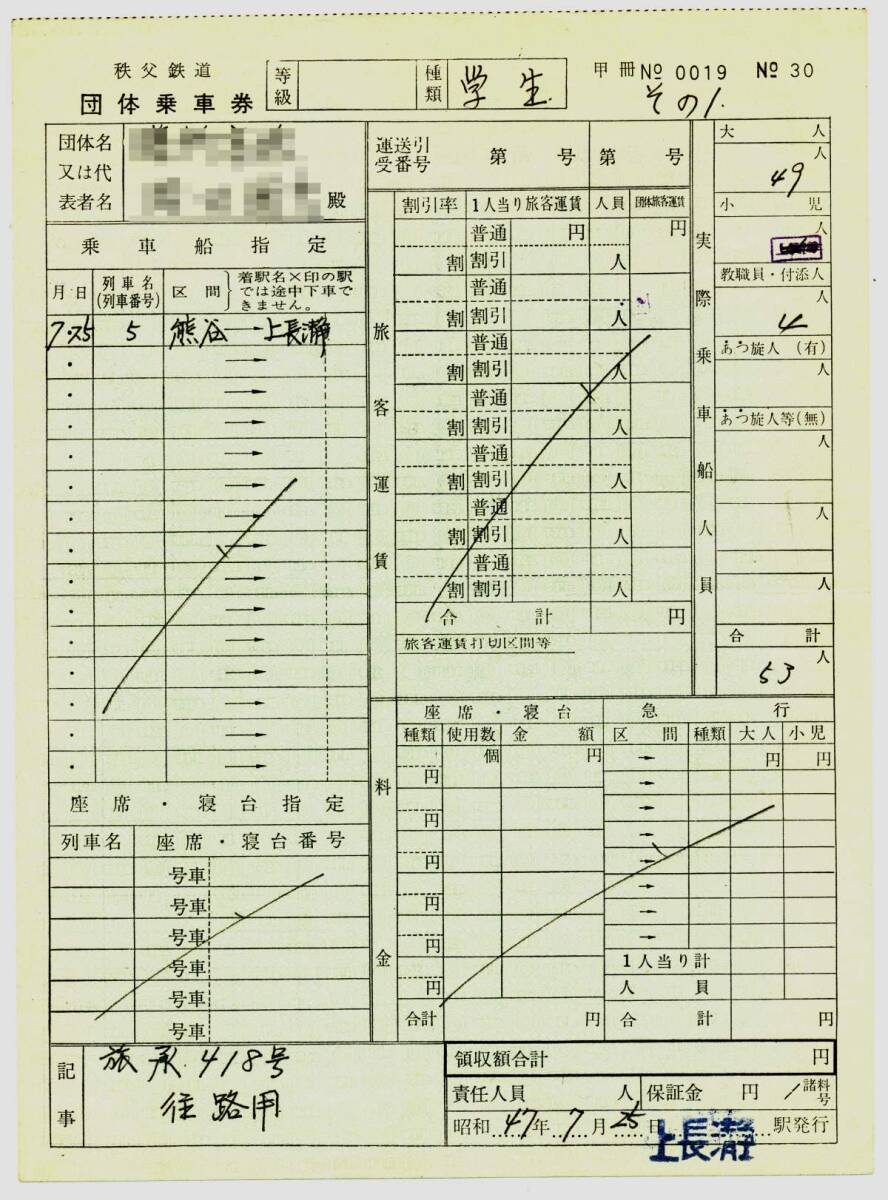 秩父鉄道
団体乗車券
等級
種類 学生
甲冊 No 0019 No 30
その1.
団体名
又は代
表者名 殿
運送引
受番号 第 号 第 号
乗車船指定
月日 列車名(列車番号) 区間 着駅名×印の駅では途中下車できません。
7・25 5 熊谷 → 上長瀞
旅客運賃
割引率 1人当り旅客運賃 人員 団体旅客運賃
普通 円 円
割 割引 人
普通
割 割引 人
普通
割 割引 人
普通
割 割引 人
普通
割 割引 人
普通
割 割引 人
普通
割 割引 人
合計 円
旅客運賃打切区間等
実際乗車船人員
大人
49 人
小児
人
教職員・付添人
4 人
あつ旋人(有)
人
あつ旋人等(無)
人
人
人
合計
53 人
座席・寝台指定
列車名 座席・寝台番号
号車
号車
号車
号車
号車
号車
料金
座席・寝台
種類 使用数 金額
個 円
円
円
円
円
円
円
合計 円
急行
区間 種類 大人 小児
→ 円 円
→
→
→
→
→
→
→
1人当り計
人員
合計 円
記事
旅承418号
往路用
領収額合計 円
責任人員 人 保証金 円 諸料号
昭和47年7月25日 上長瀞 駅発行